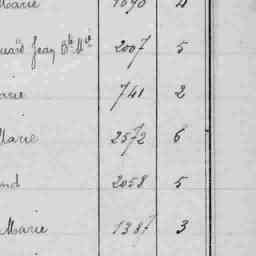 Marie 1090 4
uard Jean Bte Mie 2007 5
arie 741 2
Marie 2572 6
nd 2058 5
Marie 1387 3